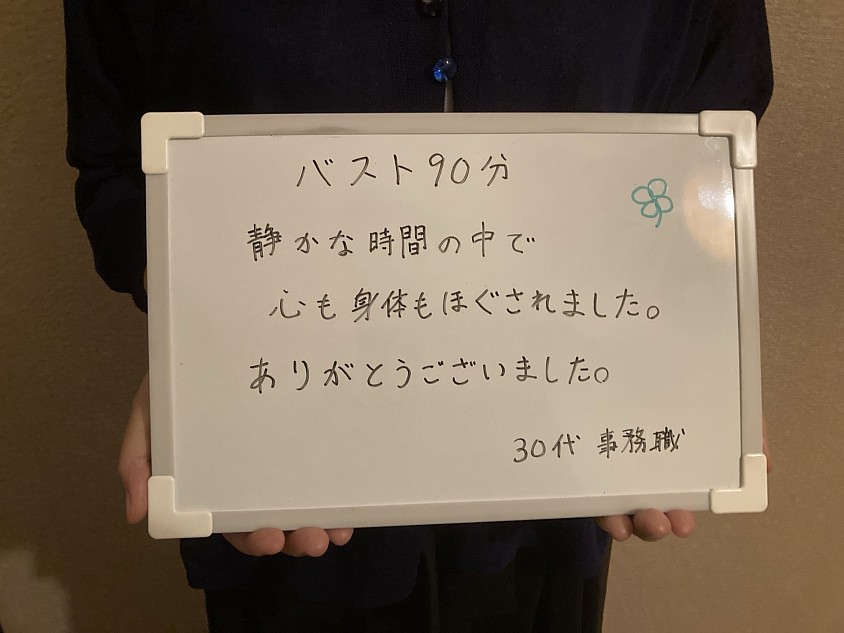 バスト90分
静かな時間の中で
心も身体もほぐされました。
ありがとうございました。
30代 事務職